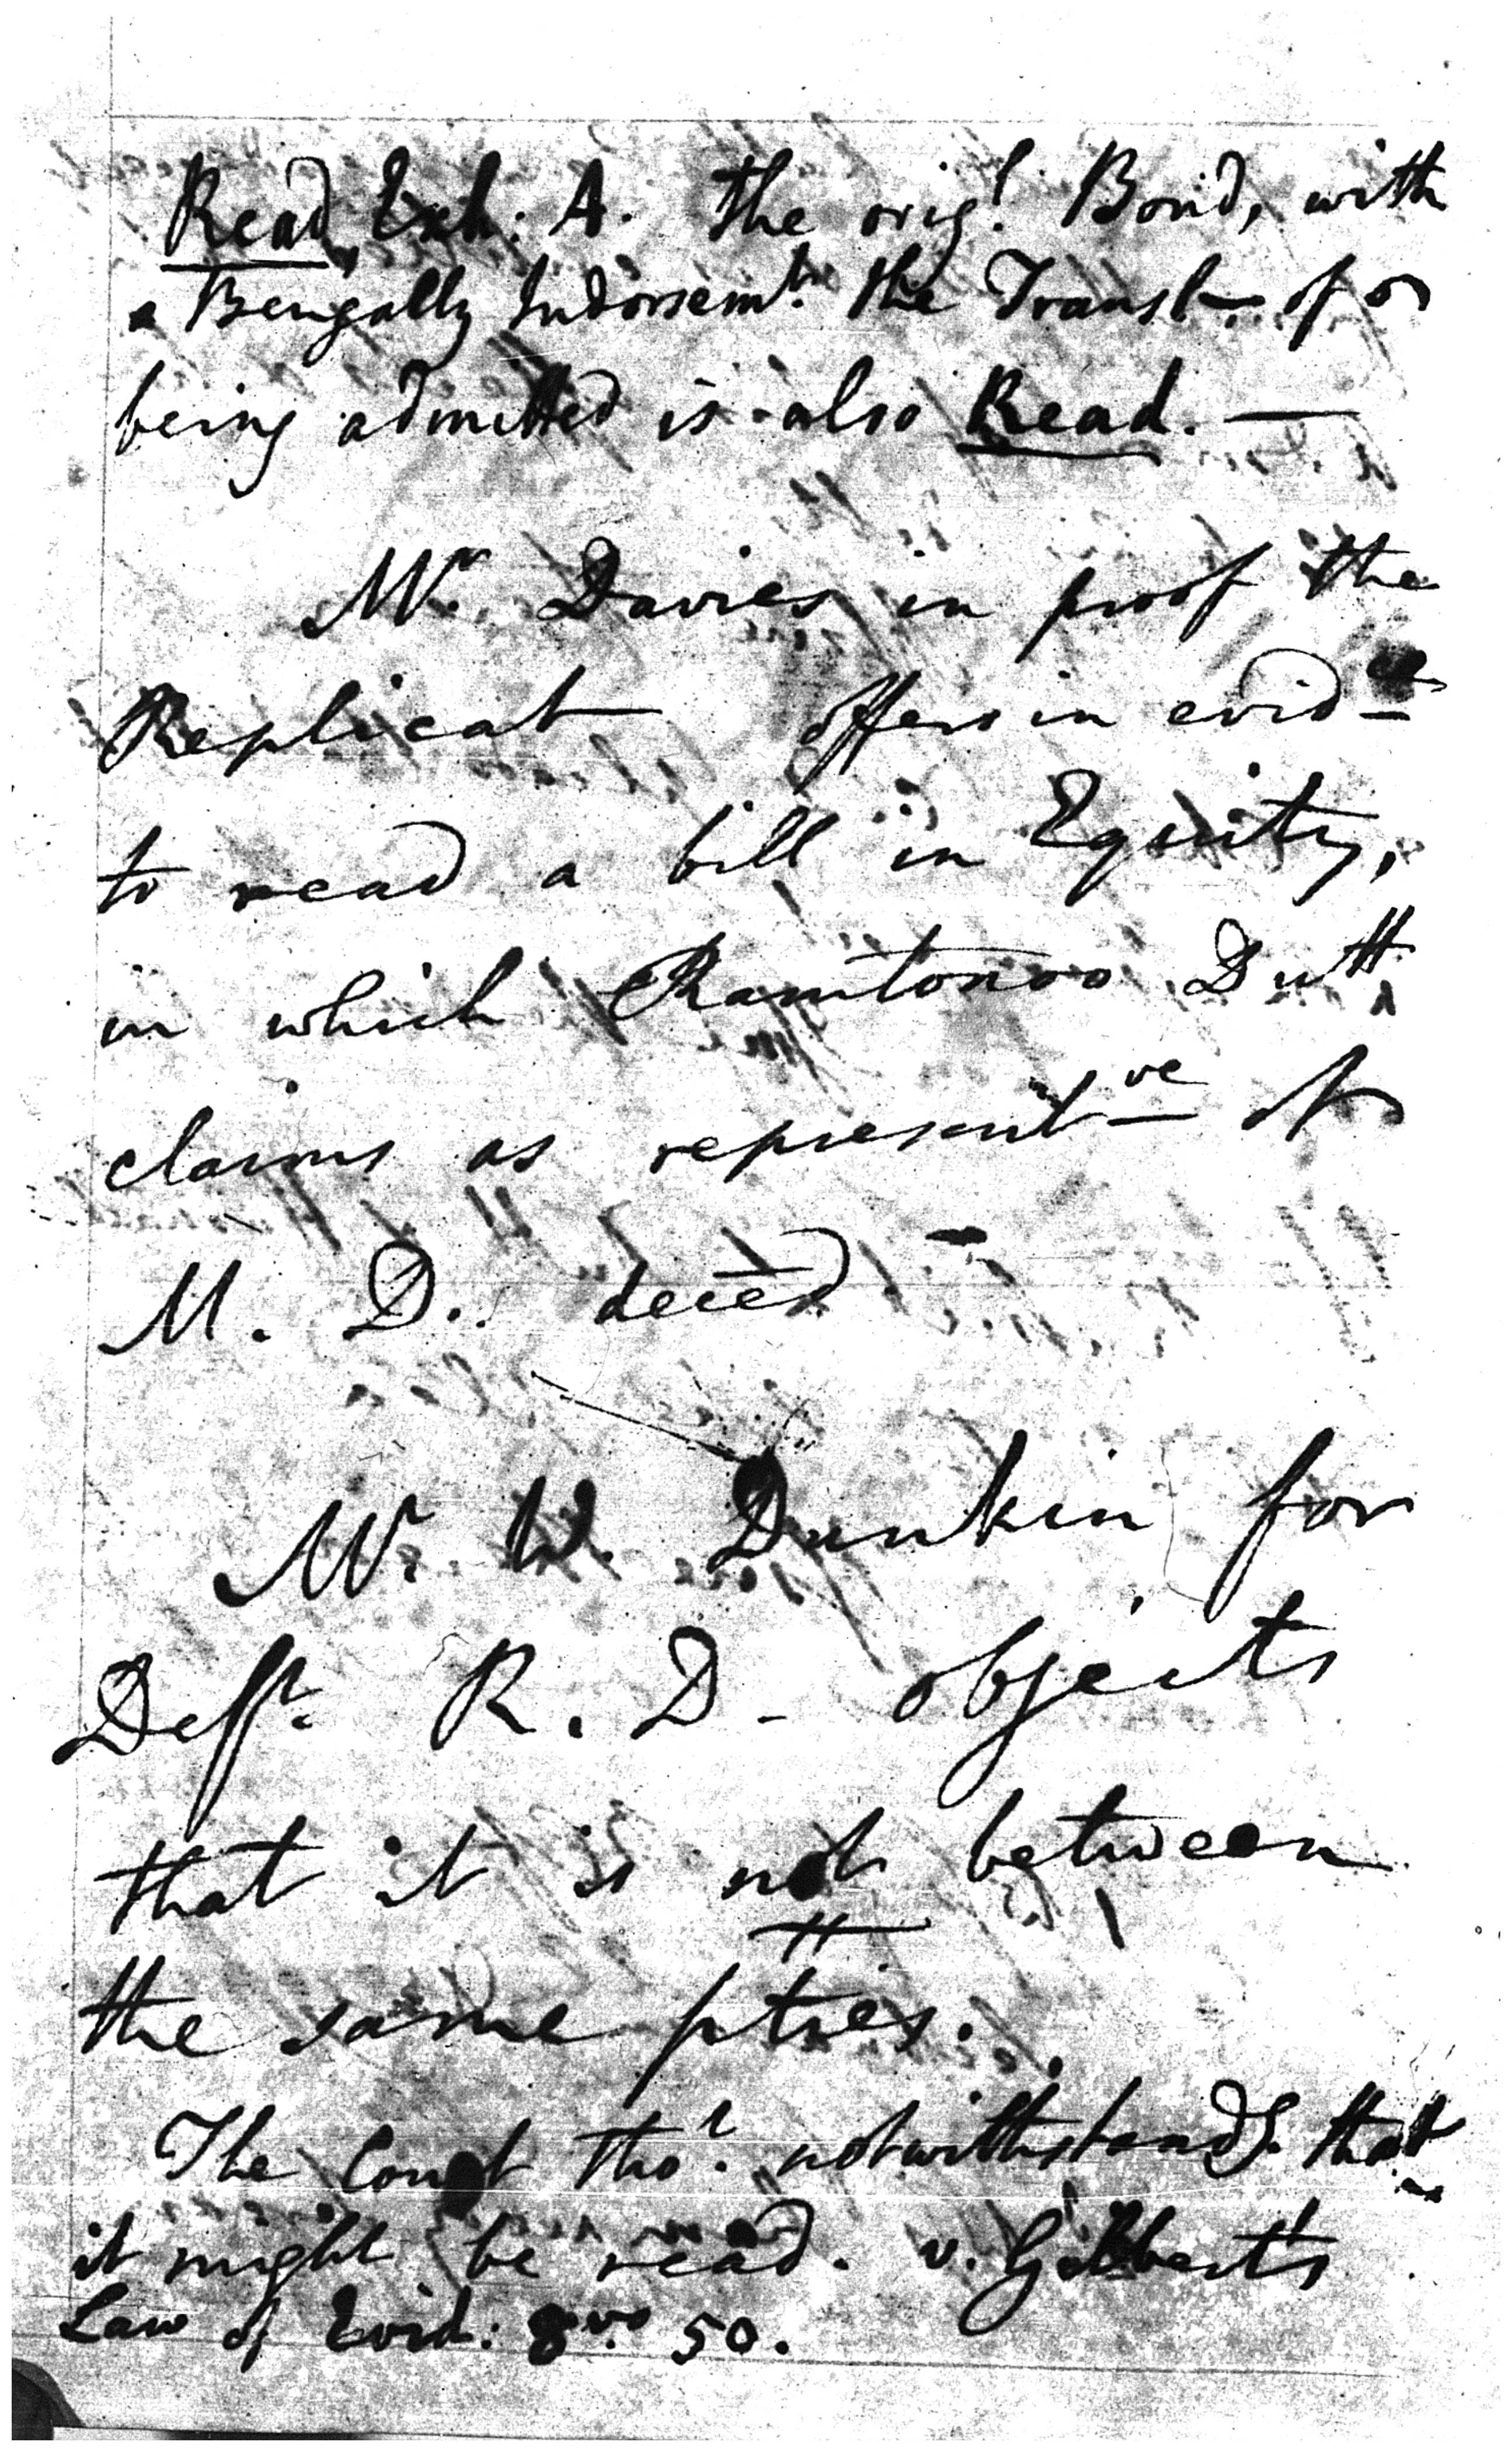 Read Exh: A. the orig.l Bond, with
a Bengally Indorsemt. the Transl– of
being admitted is also Read. —
Mr. Davies in proof the
Replicat— offers in evid–ce
to read a bill in Equity,
in which Ramtonoo Dutt
claims as represent–ve of
M. D. deced
Mr. W. Dunkin for
Defft. R. D – objects
that it is not between
the same pties.
The Court tho.t notwithstandg. that
it might be read. v. Gilbert's
Law of Evid: 8vo. 50.